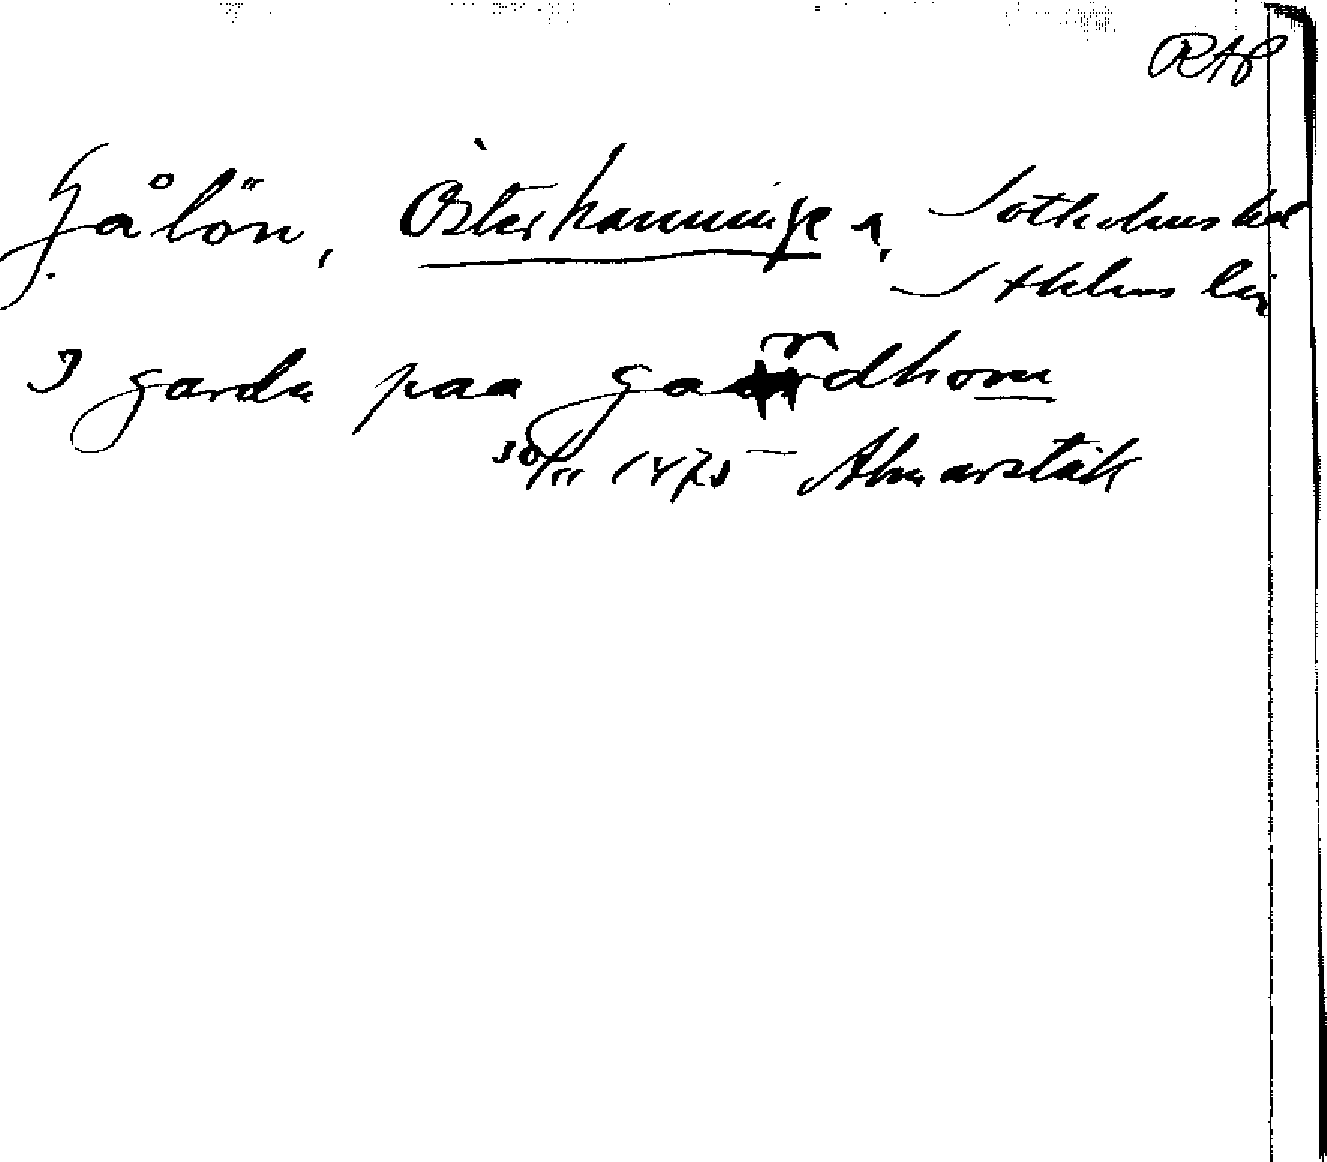 RAP
Gålön, Österhanninge sn, Sotholms hd
Sthlms län
I gardu paa gaardhom
30/11 1475 Almarstäk